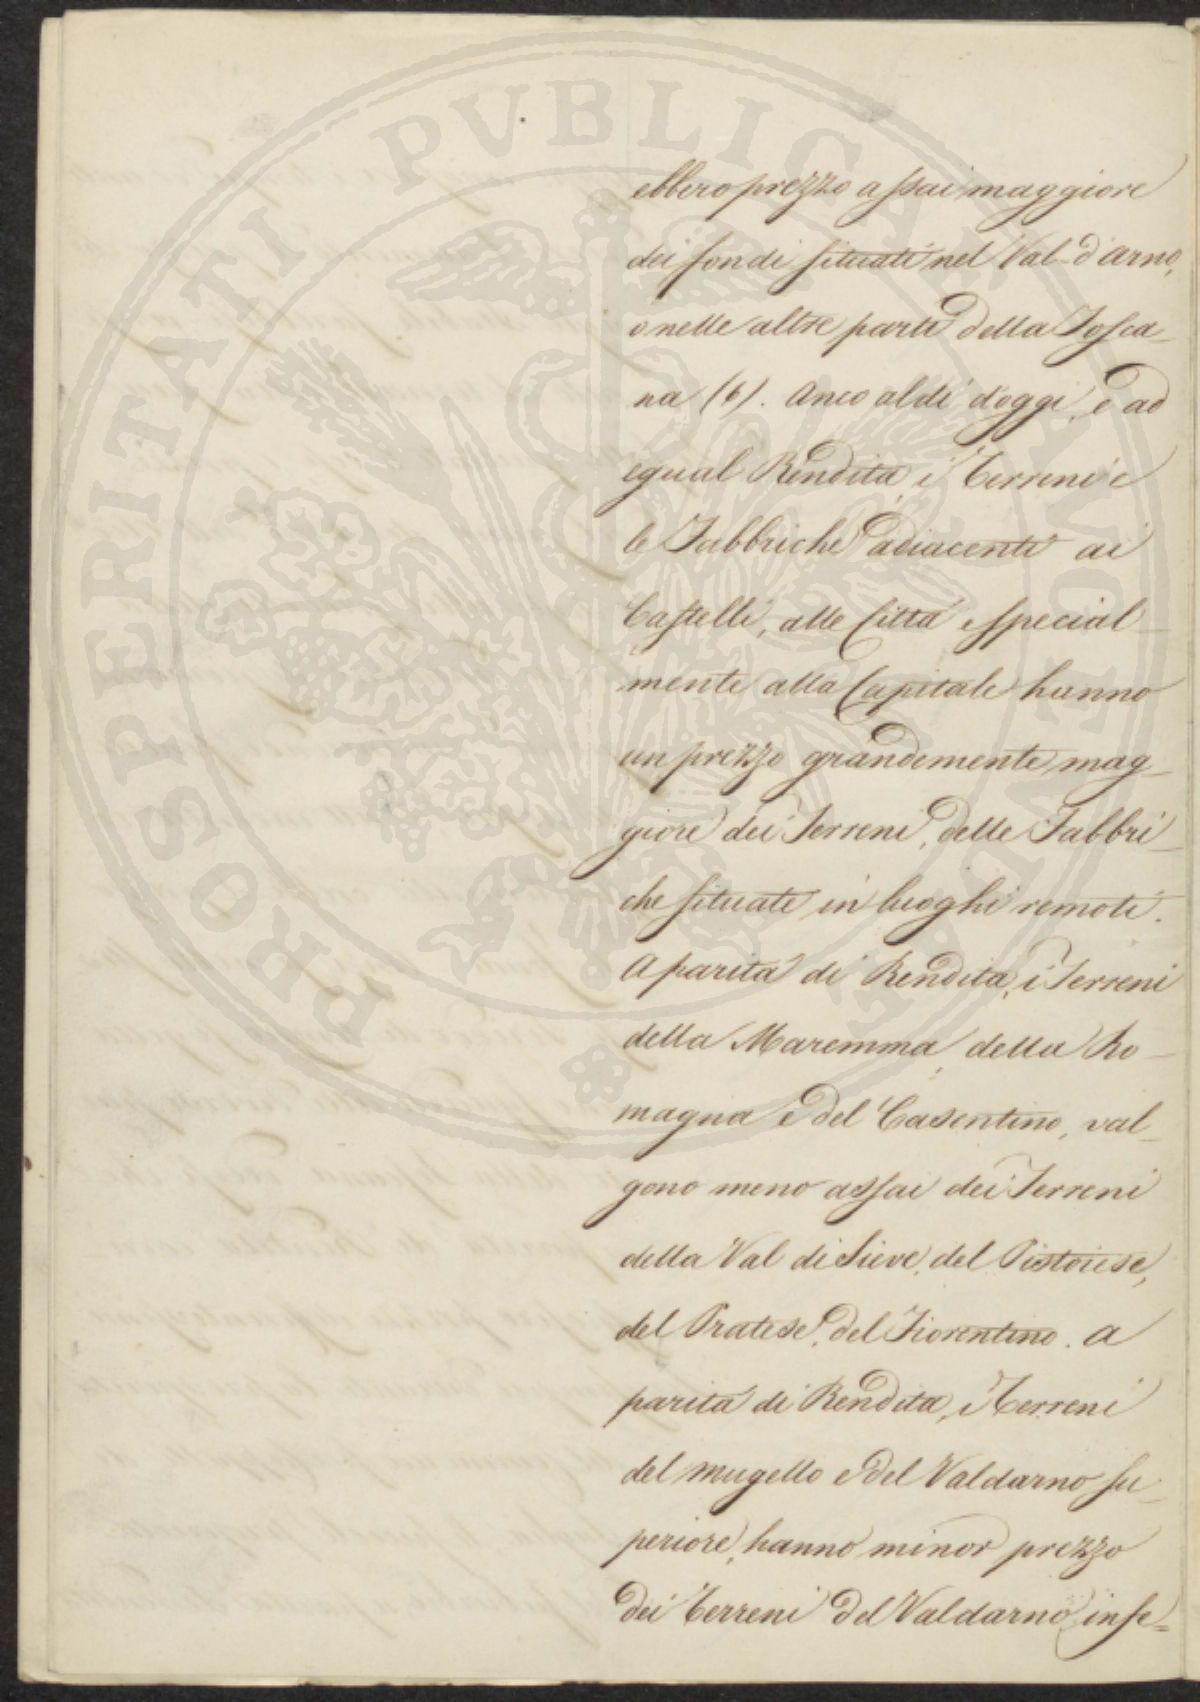 PROSPERITATI PUBLICAE
ebbero prezzo assai maggiore
dei fondi situati nel Val-d'arno,
o nelle altre parti della Tosca-
na (6). Anco al dì d'oggi, e ad
egual Rendita, i Terreni e
le Fabbriche adiacenti ai
Castelli, alle Città e special-
mente alla Capitale hanno
un prezzo grandemente mag-
giore dei Terreni, delle Fabbri-
che situate in luoghi remoti.
A parità di Rendita, i Terreni
della Maremma, della Ro-
magna e del Casentino, val-
gono meno assai dei Terreni
della Val di Sieve, del Pistoiese,
del Pratese, del Fiorentino. A
parità di Rendita, i Terreni
del Mugello e del Valdarno su-
periore, hanno minor prezzo
dei Terreni del Valdarno infe=